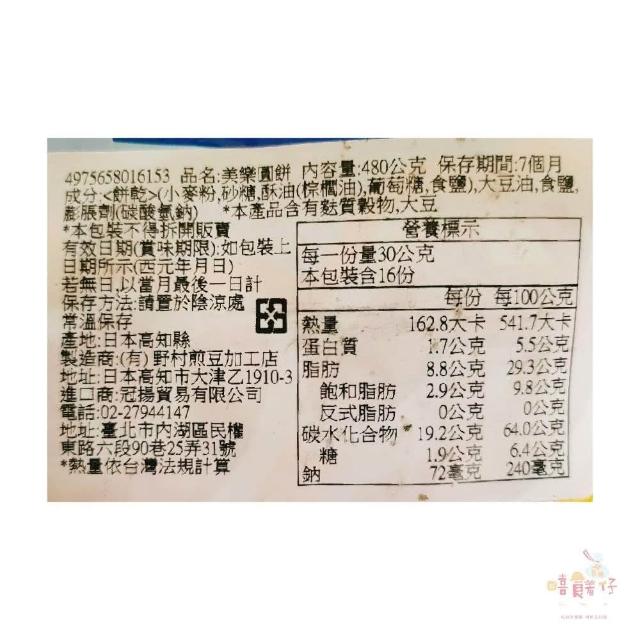 4975658016153 品名:美樂圓餅 內容量:480公克 保存期間:7個月
成分:<餅乾>(小麥粉,砂糖,酥油(棕櫚油),葡萄糖,食鹽),大豆油,食鹽,
膨脹劑(碳酸氫鈉) *本產品含有麩質穀物,大豆
*本包裝不得拆開販賣
有效日期(賞味期限):如包裝上
日期所示(西元年月日)
若無日,以當月最後一日計
保存方法:請置於陰涼處
常溫保存
產地:日本高知縣
製造商:(有)野村煎豆加工店
地址:日本高知市大津乙1910-3
進口商:冠揚貿易有限公司
電話:02-27944147
地址:臺北市內湖區民權
東路六段90巷25弄31號
*熱量依台灣法規計算
營養標示
每一份量30公克
本包裝含16份
每份 每100公克
熱量 162.8大卡 541.7大卡
蛋白質 1.7公克 5.5公克
脂肪 8.8公克 29.3公克
飽和脂肪 2.9公克 9.8公克
反式脂肪 0公克 0公克
碳水化合物 19.2公克 64.0公克
糖 1.9公克 6.4公克
鈉 72毫克 240毫克